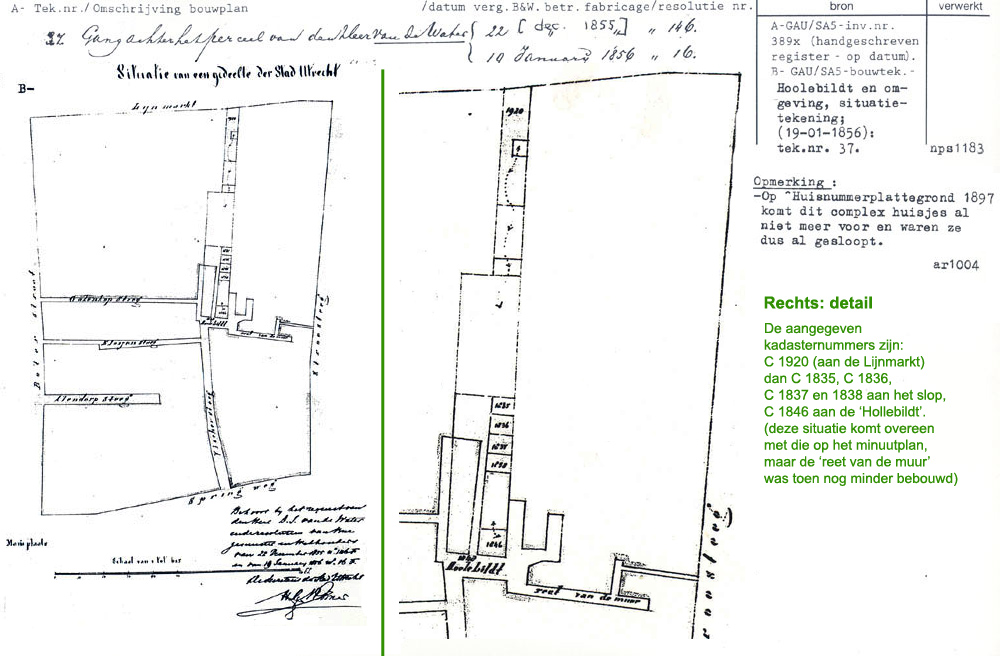 A- Tek.nr./Omschrijving bouwplan
/datum verg.B&W.betr.fabricage/resolutie nr.
bron
verwerkt
37. Gang achter het perceel van den Heer van de Water
22 [dec. 1855] „ 146.
19 January 1856 „ 16.
A-GAU/SA5-inv.nr.
389x (handgeschreven
register - op datum).
B- GAU/SA5-bouwtek.-
Hoolebildt en om-
geving, situatie-
tekening;
(19-01-1856):
tek.nr. 37.
nps1183
Opmerking :
-Op ^Huisnummerplattegrond 1897
komt dit complex huisjes al
niet meer voor en waren ze
dus al gesloopt.
ar1004
Rechts: detail
De aangegeven
kadasternummers zijn:
C 1920 (aan de Lijnmarkt)
dan C 1835, C 1836,
C 1837 en 1838 aan het slop,
C 1846 aan de ‘Hollebildt’.
(deze situatie komt overeen
met die op het minuutplan,
maar de ‘reet van de muur’
was toen nog minder bebouwd)
Situatie van een gedeelte der Stad Utrecht
B-
Lynmarkt
Boter Straat
Steeg
Steeg
Springweg
Mariaplaats
Schaal van
Behoort by het request van
den Heer van de Water
van 22 December
en van 19 January
1920
1835
1836
1837
1838
1846
Hoolebildt
reet van de muur